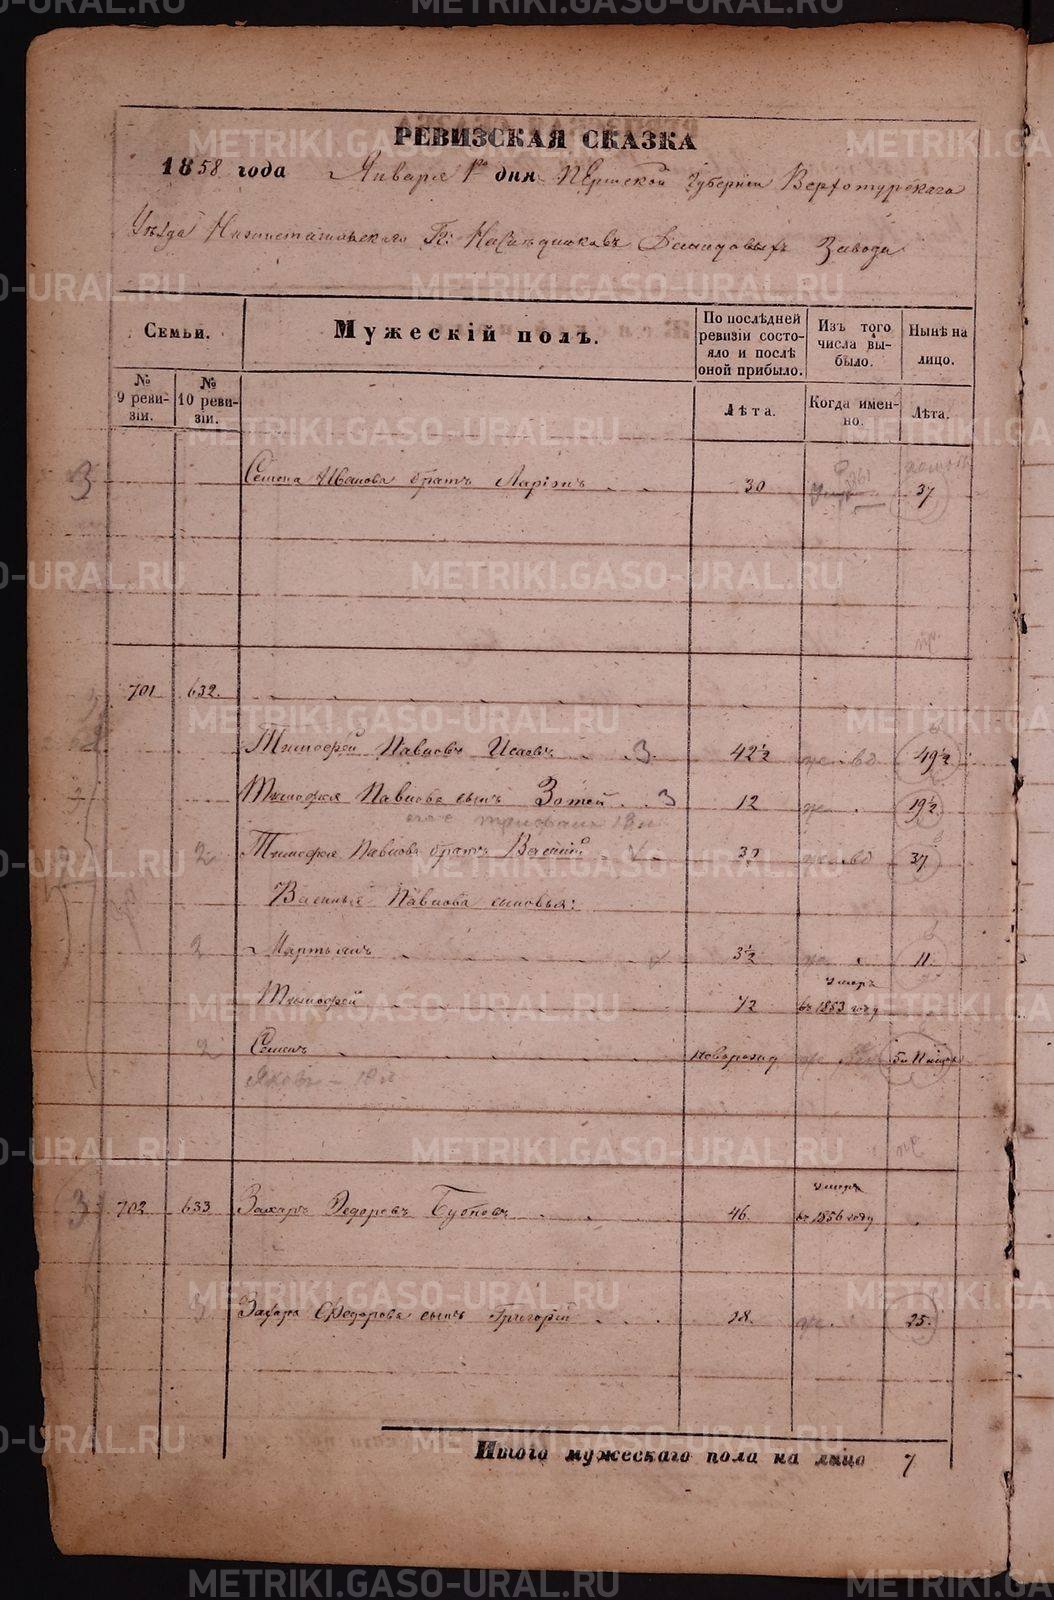 РЕВИЗСКАЯ СКАЗКА
1858 года Января 1го дня Пермской Губерніи Верхотурскаго
Уѣзда Нижнетагильскаго Гг: Наслѣдниковъ Демидовыхъ Завода
Семьи.
Мужескій полъ.
По послѣдней ревизіи состояло и послѣ оной прибыло.
Изъ того числа выбыло.
Нынѣ на лицо.
№ 9 ревизіи.
№ 10 ревизіи.
Лѣта.
Когда именно.
Лѣта.
3 Семена Иванова братъ Ларіонъ 30 1861 37
701 632.
Тимофей Павловъ Исаевъ 3. 42½ 49½
Тимофея Павлова сынъ Зотей 3 12 19½
2 Тимофея Павлова братъ Василій 30 37
Василья Павлова сыновья:
2 Мартьянъ 3½ 11.
Тимофей ½ умеръ въ 1853 году
2 Семенъ новорожд 5 и мѣсяц
Яковъ – 18 л
3 702 633 Захаръ Федоровъ Бубновъ 46. умеръ въ 1856 году
3 Захара Федорова сынъ Григорій 18. 25.
Итого мужескаго пола на лицо 7
METRIKI.GASO-URAL.RU